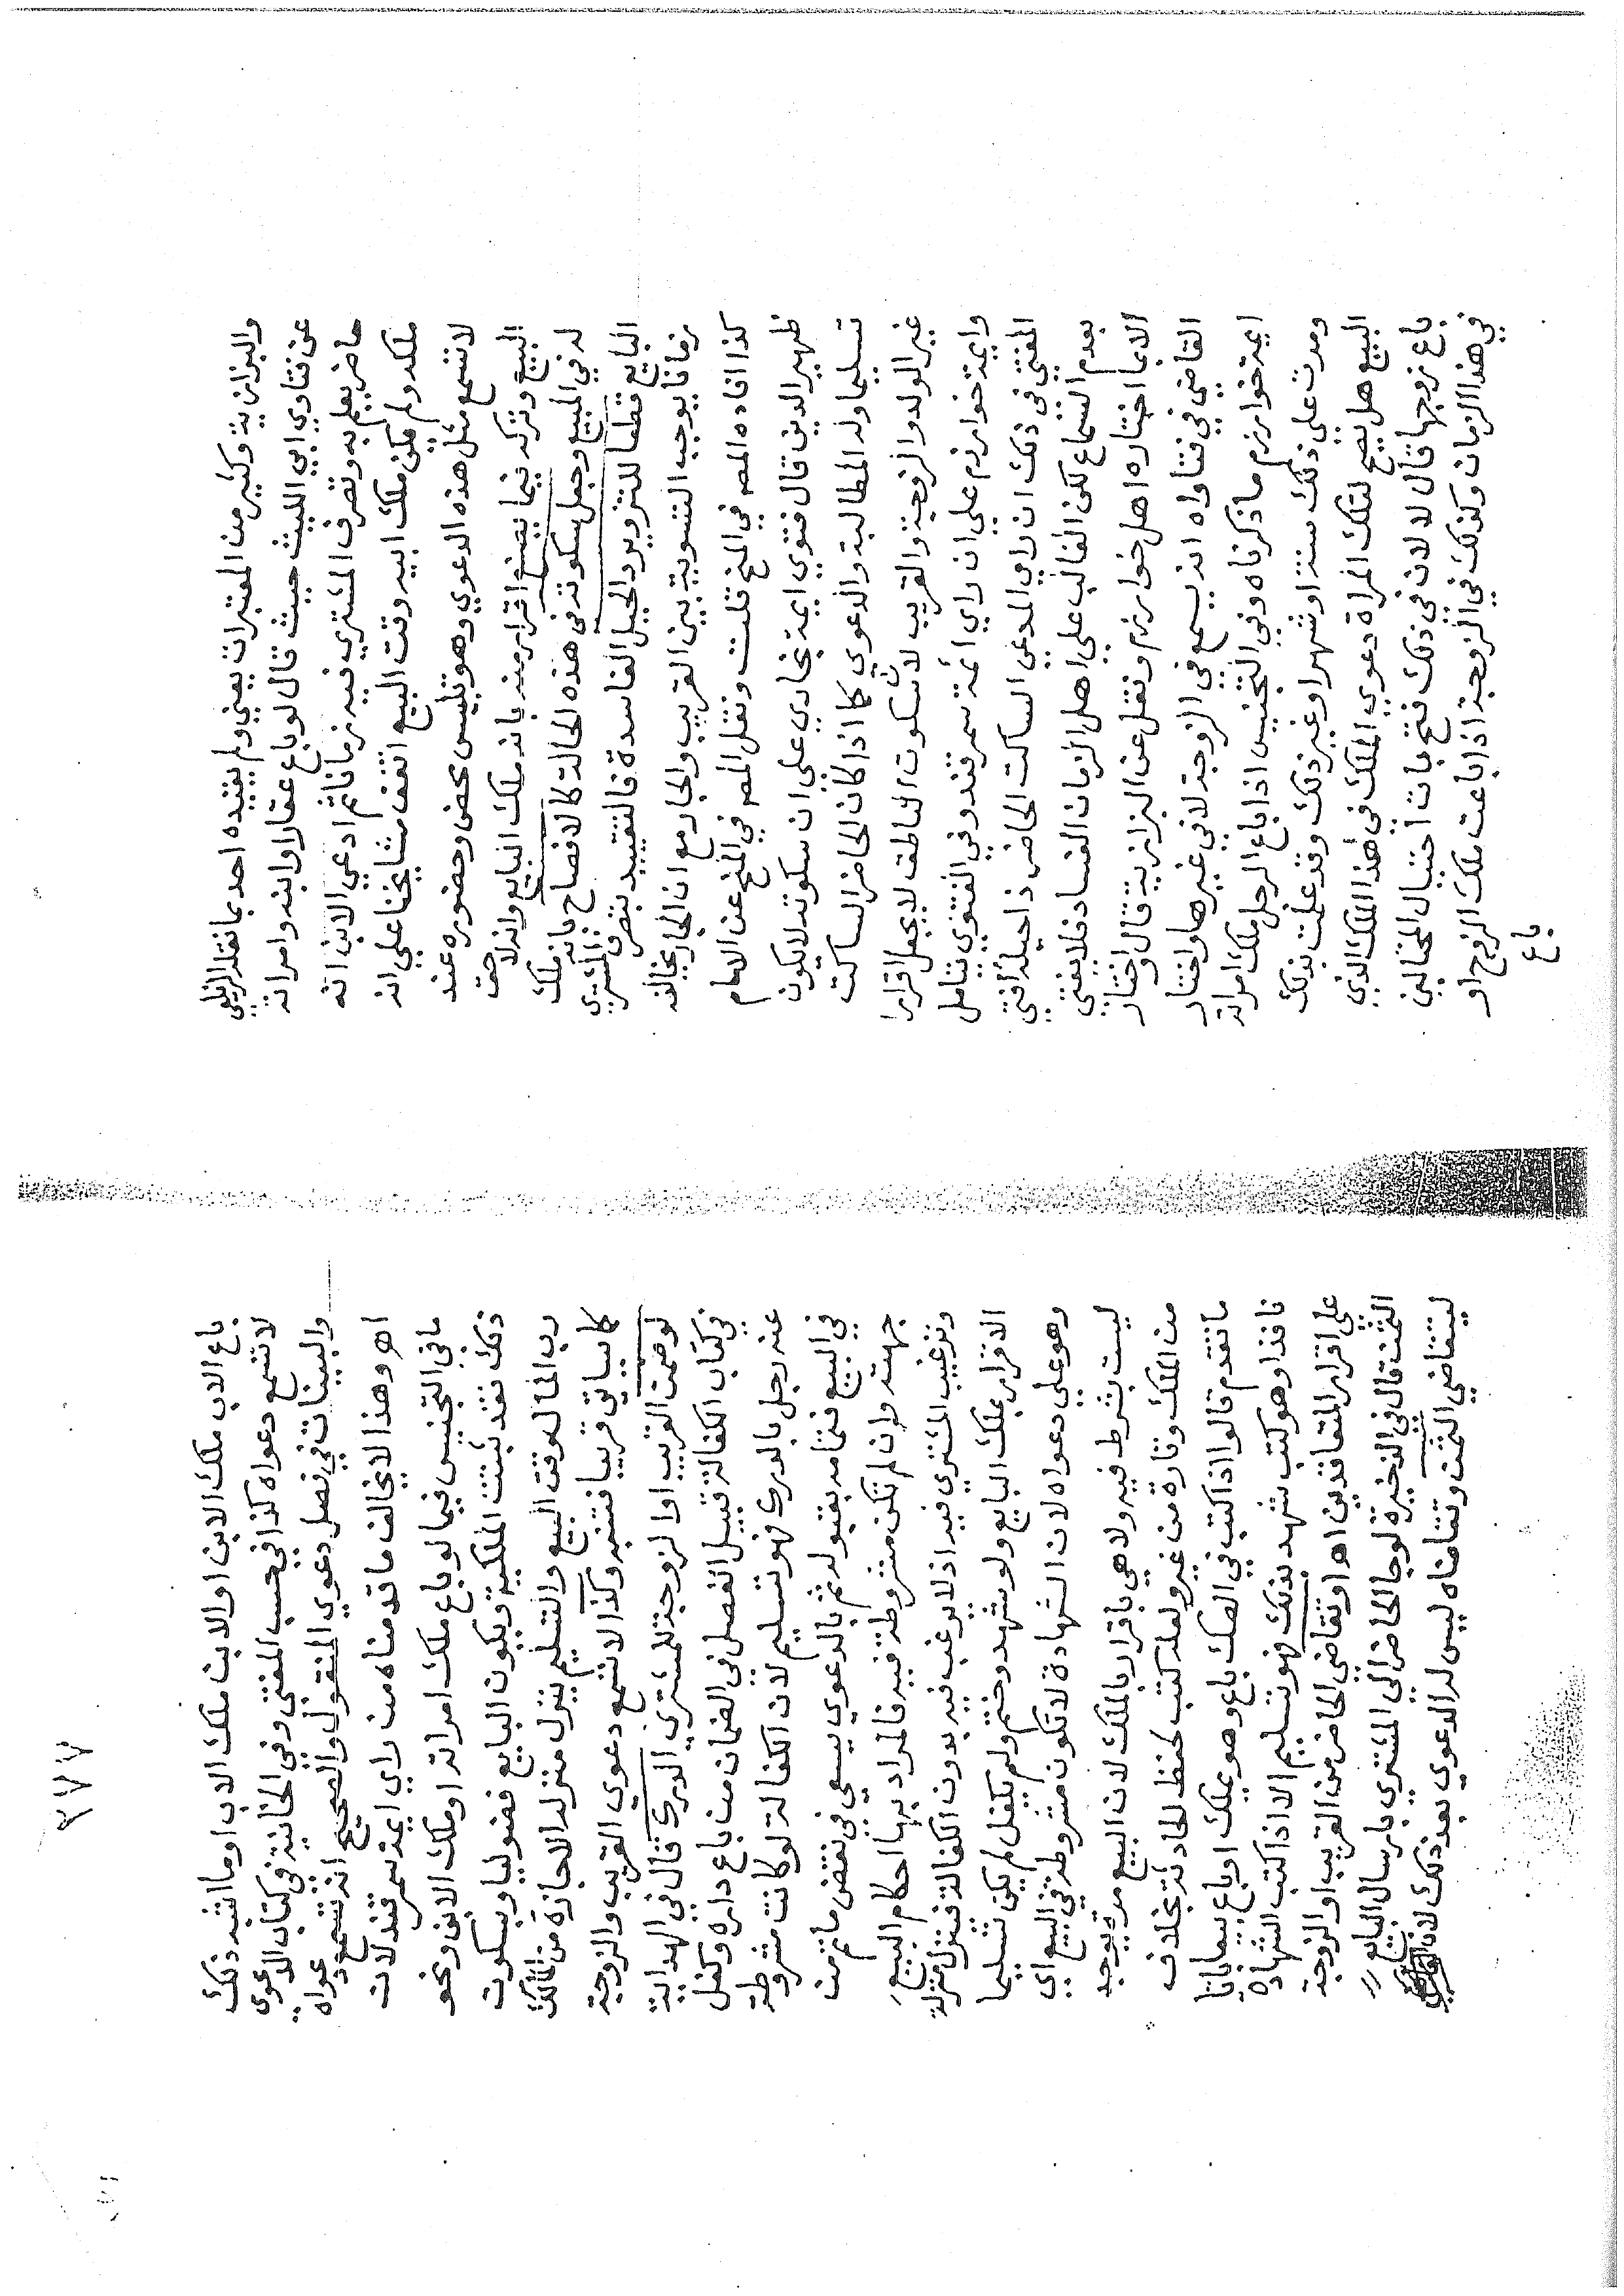 والبزازية وكثير من المعتبرات يعني ولم يقيده احد بما نقله الزيلعي
عن فتاوي ابي الليث حيث قال لو باع عقارا وابنه وامراته
حاضر يعلم به وتصرف المشتري فيه زمانا ثم ادعي الابن انه
ملكه ولم يكن ملك ابيه وقت البيع اتفق مشايخنا علي انه
لا تسمع مثل هذه الدعوي وهو تلبيس محض وحضوره عند
البيع وتركه فيما يصنع اقرار منه بانه ملك البايع وانه لا حق
له في المبيع وجعل سكوته في هذه الحالة كالافصاح بانه ملك
البايع قطعا للتزوير والحيل الفاسدة فالتقييد بتصرف المشتري
زمانا يوجب التسوية بين القريب والجار مع ان الجار يخالفه
كذا افاده المصـ في المنح قلت ونقل المصـ في المنح عن الامام
ظهير الدين قال فتوي ايمة بخاري علي ان سكوته لا يكون
تسليما وله المطالبة والدعوي كما اذا كان الحاضر الساكت
غير الولد والزوجة والقريب لان سكوت الناطق لا يجعل اقرارا
وايمة خوارزم علي ان راي أئمة سمرقند وفي الفتوي يتامل
المفتي في ذلك ان راي المدعي الساكت الحاضر ذا حيلة أفتي
بعدم التسماع لكن الغالب علي اهل الزمان الفساد فلا يفتي
الا بما اختاره اهل خوارزم ونقل عن البزازية قال واختار
القاضي في فتاواه انه يسمع في الزوجة لا في غيرها واختار
ايمة خوارزم ما ذكرناه وفي التجنيس اذا باع الرجل ملك امراته
ومرت علي ذلك سنة او شهرا وغير ذلك وقد علمت بذلك
البيع هل يصح لتلك المراة دعوي الملك في هذا الملك الذي
باع زوجها قال لا لان في ذلك فتح باب احتيال المحتالين
في هذا الزمان وكذلك في الزوجة اذا باعت ملك الزوج او
باع
٢٧٧
باع الاب ملك الابن او الابن ملك الاب او ما اشبه ذلك
لا تسمع دعواه كذا في حسب المفتي وفي الخانية في كتاب الدعوي
والبينات في فصل دعوي المنقول والصحيح انه تسمع دعواه
اهـ وهذا لا يخالف ما قدمناه من راي ايمة سمرقند لان
ما في التجنيس فيما لو باع ملك امراته او ملك الابن ونحو
ذلك فقد ثبتت الملكية ويكون البايع فضوليا وبسكوت
رب المال وقت البيع والتسليم ينزل منزلة الاجازة من المالك
كما سياتي قريبا فتنبه وكذا لا تسمع دعوي القريب والزوجة
لو ضمن القريب او الزوجة للمشتري الدرك قال في الهداية
في كتاب الكفالة قبيل الفصل في الضمان من باع داره وكفل
عنه رجل بالدرك فهو تسليم لان الكفالة لو كانت مشروطة
في البيع فتمامه بقبوله ثم بالدعوي يسعي في نقض ما تم من
جهته وان لم تكن مشروطة فيه فالمراد بها احكام البيع
وترغيب المشتري فيه اذ لا يرغب فيه بدون الكفالة فينزل منزلة
الاقرار بملك البايع ولو شهد وختم ولم يكفل لم يكن تسليما
وهو علي دعواه لان الشهادة لا تكون مشروطة في البيع اي
ليست بشرط فيه ولا هي باقرار بالملك لان البيع مرة يوجد
من الملك وتارة من غيره ولعله كتب لحفظ الحادثة بخلاف
ما تقدم قالوا اذا كتب في الصك باع وهو يملك او باع بيعا باتا
نافذا وهو كتب شهد بذلك فهو تسليم الا اذا كتب الشهادة
علي اقرار المتعاقدين اهـ او تقاضي الحاضر من القريب او الزوجة
الثمن قال في الذخيرة لو جا الحاضر الي المشتري بارسال البايع
ليتقاضي الثمن وتقاضاه ليس له الدعوي بعد ذلك لان